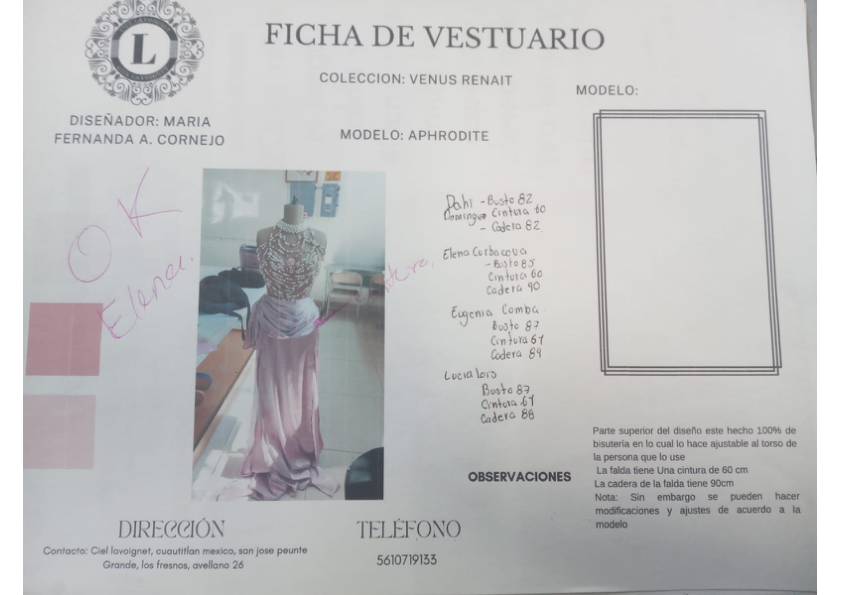 L
FICHA DE VESTUARIO
COLECCION: VENUS RENAIT
MODELO:
DISEÑADOR: MARIA
FERNANDA A. CORNEJO
MODELO: APHRODITE
OK
Elena.
Dahl - Busto 82
Domingue Cintura 60
- Cadera 82
Elena
- Busto 85
Cintura 60
Cadera 90
Eugenia Comba
Busto 87
Cintura 67
Cadera 89
Lucia Lois
Busto 87
Cintura 67
Cadera 88
OBSERVACIONES
Parte superior del diseño este hecho 100% de
bisuteria en lo cual lo hace ajustable al torso de
la persona que lo use
La falda tiene Una cintura de 60 cm
La cadera de la falda tiene 90cm
Nota: Sin embargo se pueden hacer
modificaciones y ajustes de acuerdo a la
modelo
DIRECCIÓN
Contacto: Ciel lavoignet, cuautitlan mexico, san jose peunte
Grande, los fresnos, avellano 26
TELÉFONO
5610719133